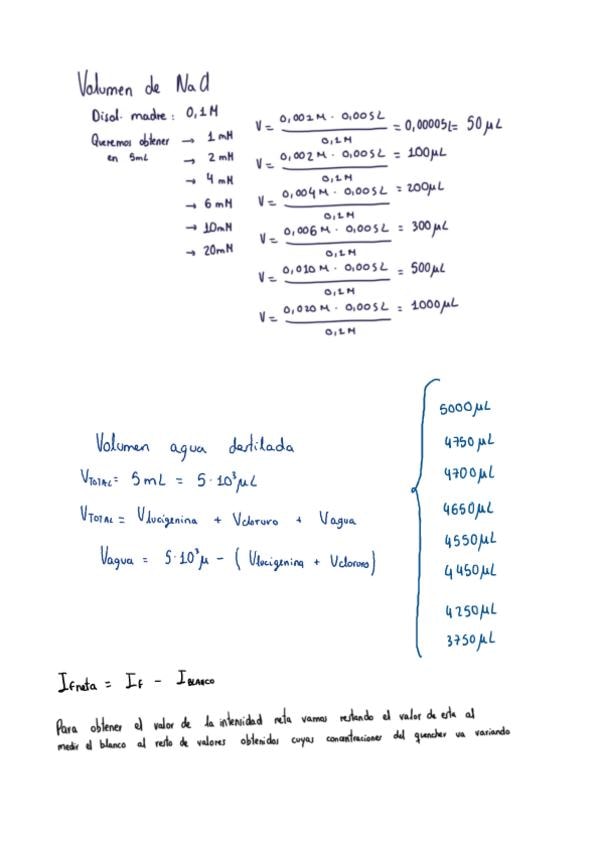 Volumen de NaCl
Disol. madre: 0,1M
Queremos obtener → 1 mM
en 5mL → 2 mM
→ 4 mM
→ 6 mM
→ 10mM
→ 20mM
V = 0,001M · 0,005L / 0,1M = 0,00005L = 50 µL
V = 0,002M · 0,005L / 0,1M = 100µL
V = 0,004M · 0,005L / 0,1M = 200µL
V = 0,006M · 0,005L / 0,1M = 300µL
V = 0,010M · 0,005L / 0,1M = 500µL
V = 0,020M · 0,005L / 0,1M = 1000µL
Volumen agua destilada
VTOTAL = 5mL = 5·10³µL
VTOTAL = Vlucigenina + Vcloruro + Vagua
Vagua = 5·10³µ - (Vlucigenina + Vcloruro)
5000µL
4750µL
4700µL
4650µL
4550µL
4450µL
4250µL
3750µL
IFneta = IF - IBLANCO
Para obtener el valor de la intensidad neta vamos restando el valor de esta al
medir el blanco al resto de valores obtenidos cuyas concentraciones del quencher va variando